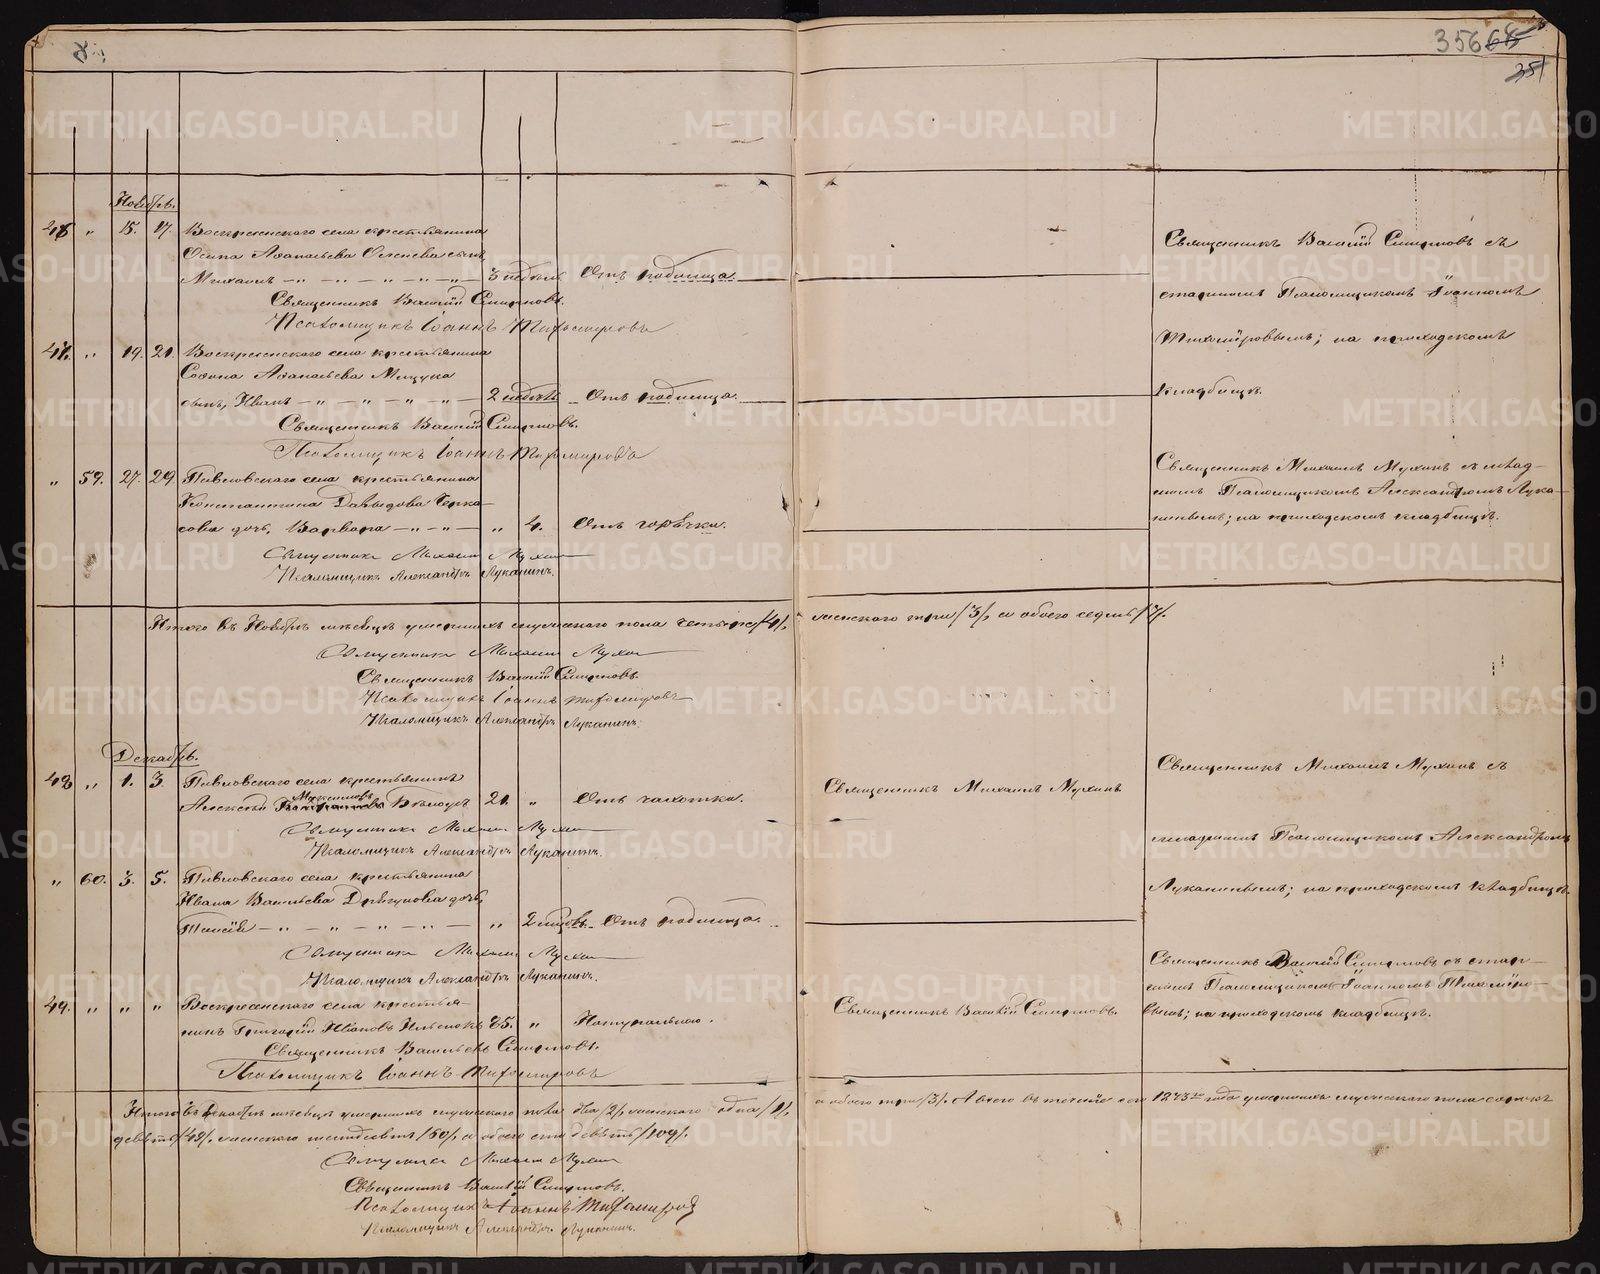 356
351
Ноябрь.
46 " 15. 17. Воскресенскаго села крестьянина
Осипа Аѳанасьева сынъ,
Михаилъ 3 недѣль Отъ родимца.
Священникъ Василій Смирновъ.
Псаломщикъ Іоаннъ Тихомировъ
47. " 19. 21. Воскресенскаго села крестьянина
Аѳанасьева
сынъ, Иванъ 2 недѣль Отъ родимца.
Священникъ Василій Смирновъ.
Псаломщикъ Іоаннъ Тихомировъ
" 59. 27. 29 Павловскаго села крестьянина
Константина Давыдова Черка-
сова дочь, Варвара " 4. Отъ горячки.
Священникъ Михаилъ Мухинъ
Псаломщикъ Александръ Луканинъ.
Священникъ Василій Смирновъ съ
старшимъ Псаломщикомъ Іоанномъ
Тихоміровымъ; на приходскомъ
кладбищѣ.
Священникъ Михаилъ Мухинъ съ млад-
шимъ Псаломщикомъ Александромъ Лука-
нинымъ; на приходскомъ кладбищѣ.
Итого въ Ноябрѣ мѣсяцѣ умершихъ мужескаго пола четыре /4/, женскаго три /3/, а обоего седмь /7/.
Священникъ Михаилъ Мухинъ
Священникъ Василій Смирновъ
Псаломщикъ Іоаннъ Тихомировъ
Псаломщикъ Александръ Луканинъ.
Декабрь.
48 " 1. 3. Павловскаго села крестьянинъ
Максимовъ
Алексѣй 21. " Отъ чахотки. Священникъ Михаилъ Мухинъ
Священникъ Михаилъ Мухинъ
Псаломщикъ Александръ Луканинъ.
" 60. 3. 5. Павловскаго села крестьянина
Ивана Васильева дочь,
Таисія " 2 мѣсяц. Отъ родимца.
Священникъ Михаилъ Мухинъ
Псаломщикъ Александръ Луканинъ.
49. " " " Воскресенскаго села крестья-
нинъ Григорій Ивановъ 85. " Натурально. Священникъ Василій Смирновъ.
Священникъ Василій Смирновъ.
Псаломщикъ Іоаннъ Тихомировъ
Священникъ Михаилъ Мухинъ съ
младшимъ Псаломщикомъ Александромъ
Луканинымъ; на приходскомъ кладбищѣ.
Священникъ Василій Смирновъ съ стар-
шимъ Псаломщикомъ Іоанномъ Тихоміро-
вымъ; на приходскомъ кладбищѣ.
Итого въ Декабрѣ мѣсяцѣ умершихъ мужескаго пола два /2/, женскаго одна /1/, а обоего три /3/. А всего въ теченіе сего 1873го года умершихъ мужескаго пола сорокъ
девять /49/, женскаго шестьдесятъ /60/, а обоего сто девять /109/.
Священникъ Михаилъ Мухинъ
Священникъ Василій Смирновъ.
Псаломщикъ Іоаннъ Тихомировъ
Псаломщикъ Александръ Луканинъ.
METRIKI.GASO-URAL.RU